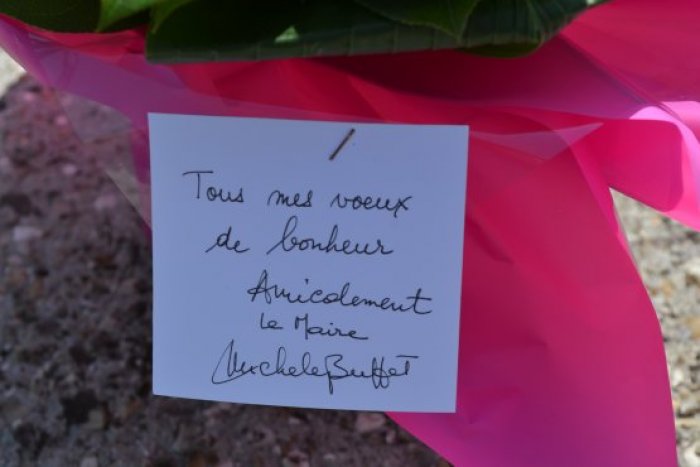 Tous mes voeux
de bonheur
Amicalement
Le Maire
Michele Buffet